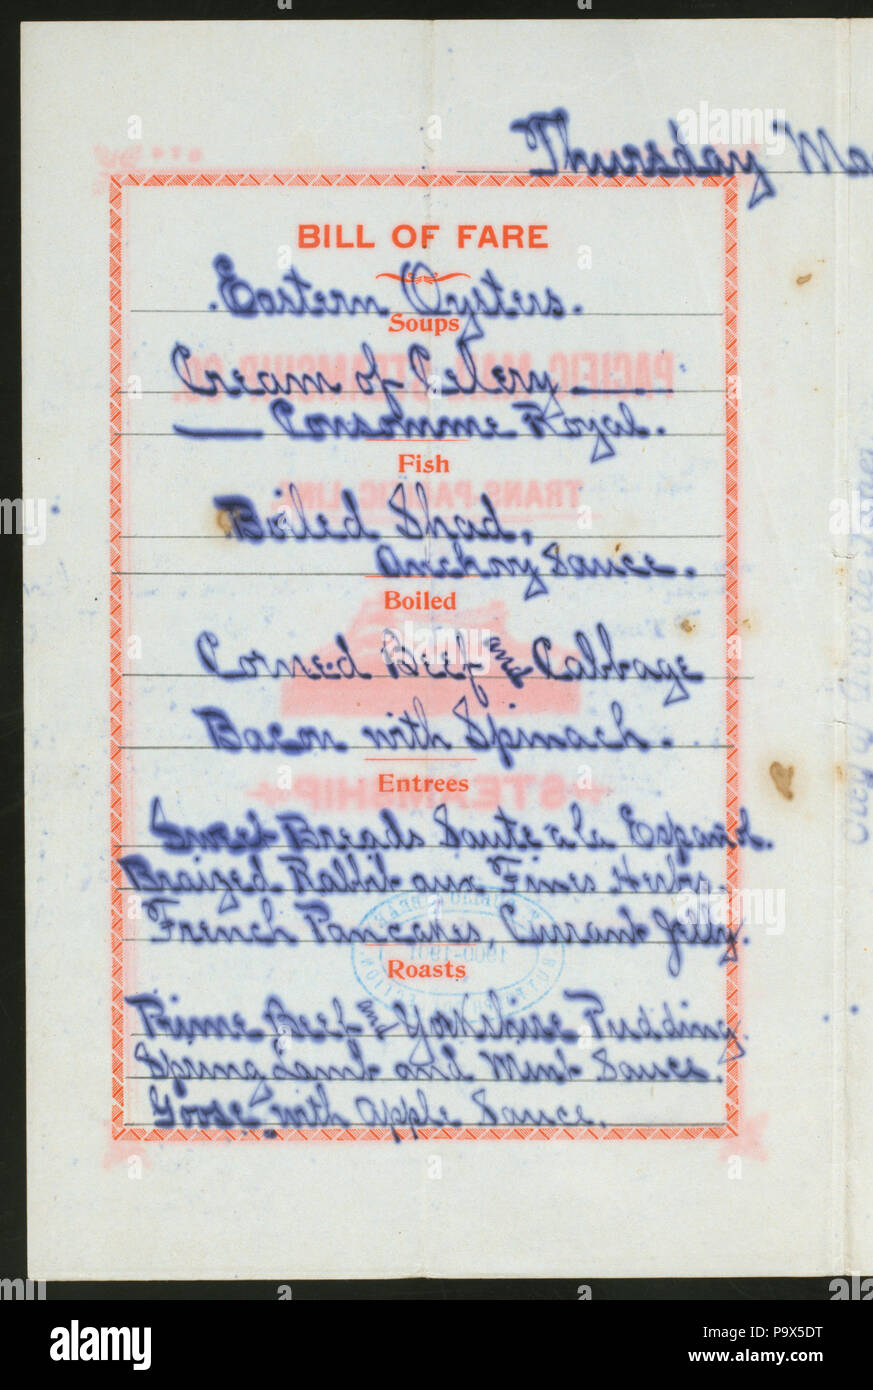 Thursday Ma
BILL OF FARE
Eastern Oysters.
Soups
Cream of Celery
Consomme Royal.
Fish
Boiled Shad,
Anchovy Sauce.
Boiled
Corned Beef and Cabbage
Bacon with Spinach.
Entrees
Sweet Breads Saute a la Espanol.
Braized Rabbit aux Fines Herbs.
French Pancakes, Currant Jelly.
Roasts
Prime Beef and Yorkshire Pudding
Spring Lamb and Mint Sauce.
Goose with Apple Sauce.
PACIFIC MAIL STEAMSHIP CO.
TRANS-PACIFIC LINE
STEAMSHIP
1900-1901
alamy
Image ID: P9X5DT
www.alamy.com